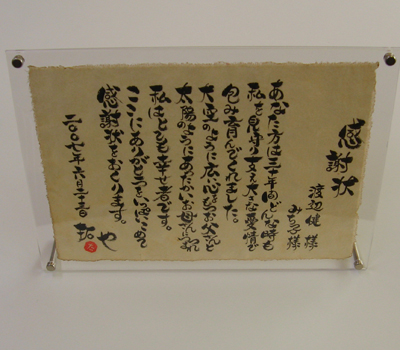 感謝状
渡辺健 様
みち子様
あなた方は三十年間どんな時も
私を見守り支え大きな愛情で
包み育んでくれました。
大空のように広い心をもつお父さんと
太陽のようにあったかいお母さんに
私はとても幸せ者です。
ここにありがとうをいっぱいこめて
感謝状をおくります。
二〇〇七年六月二十三日
拓也